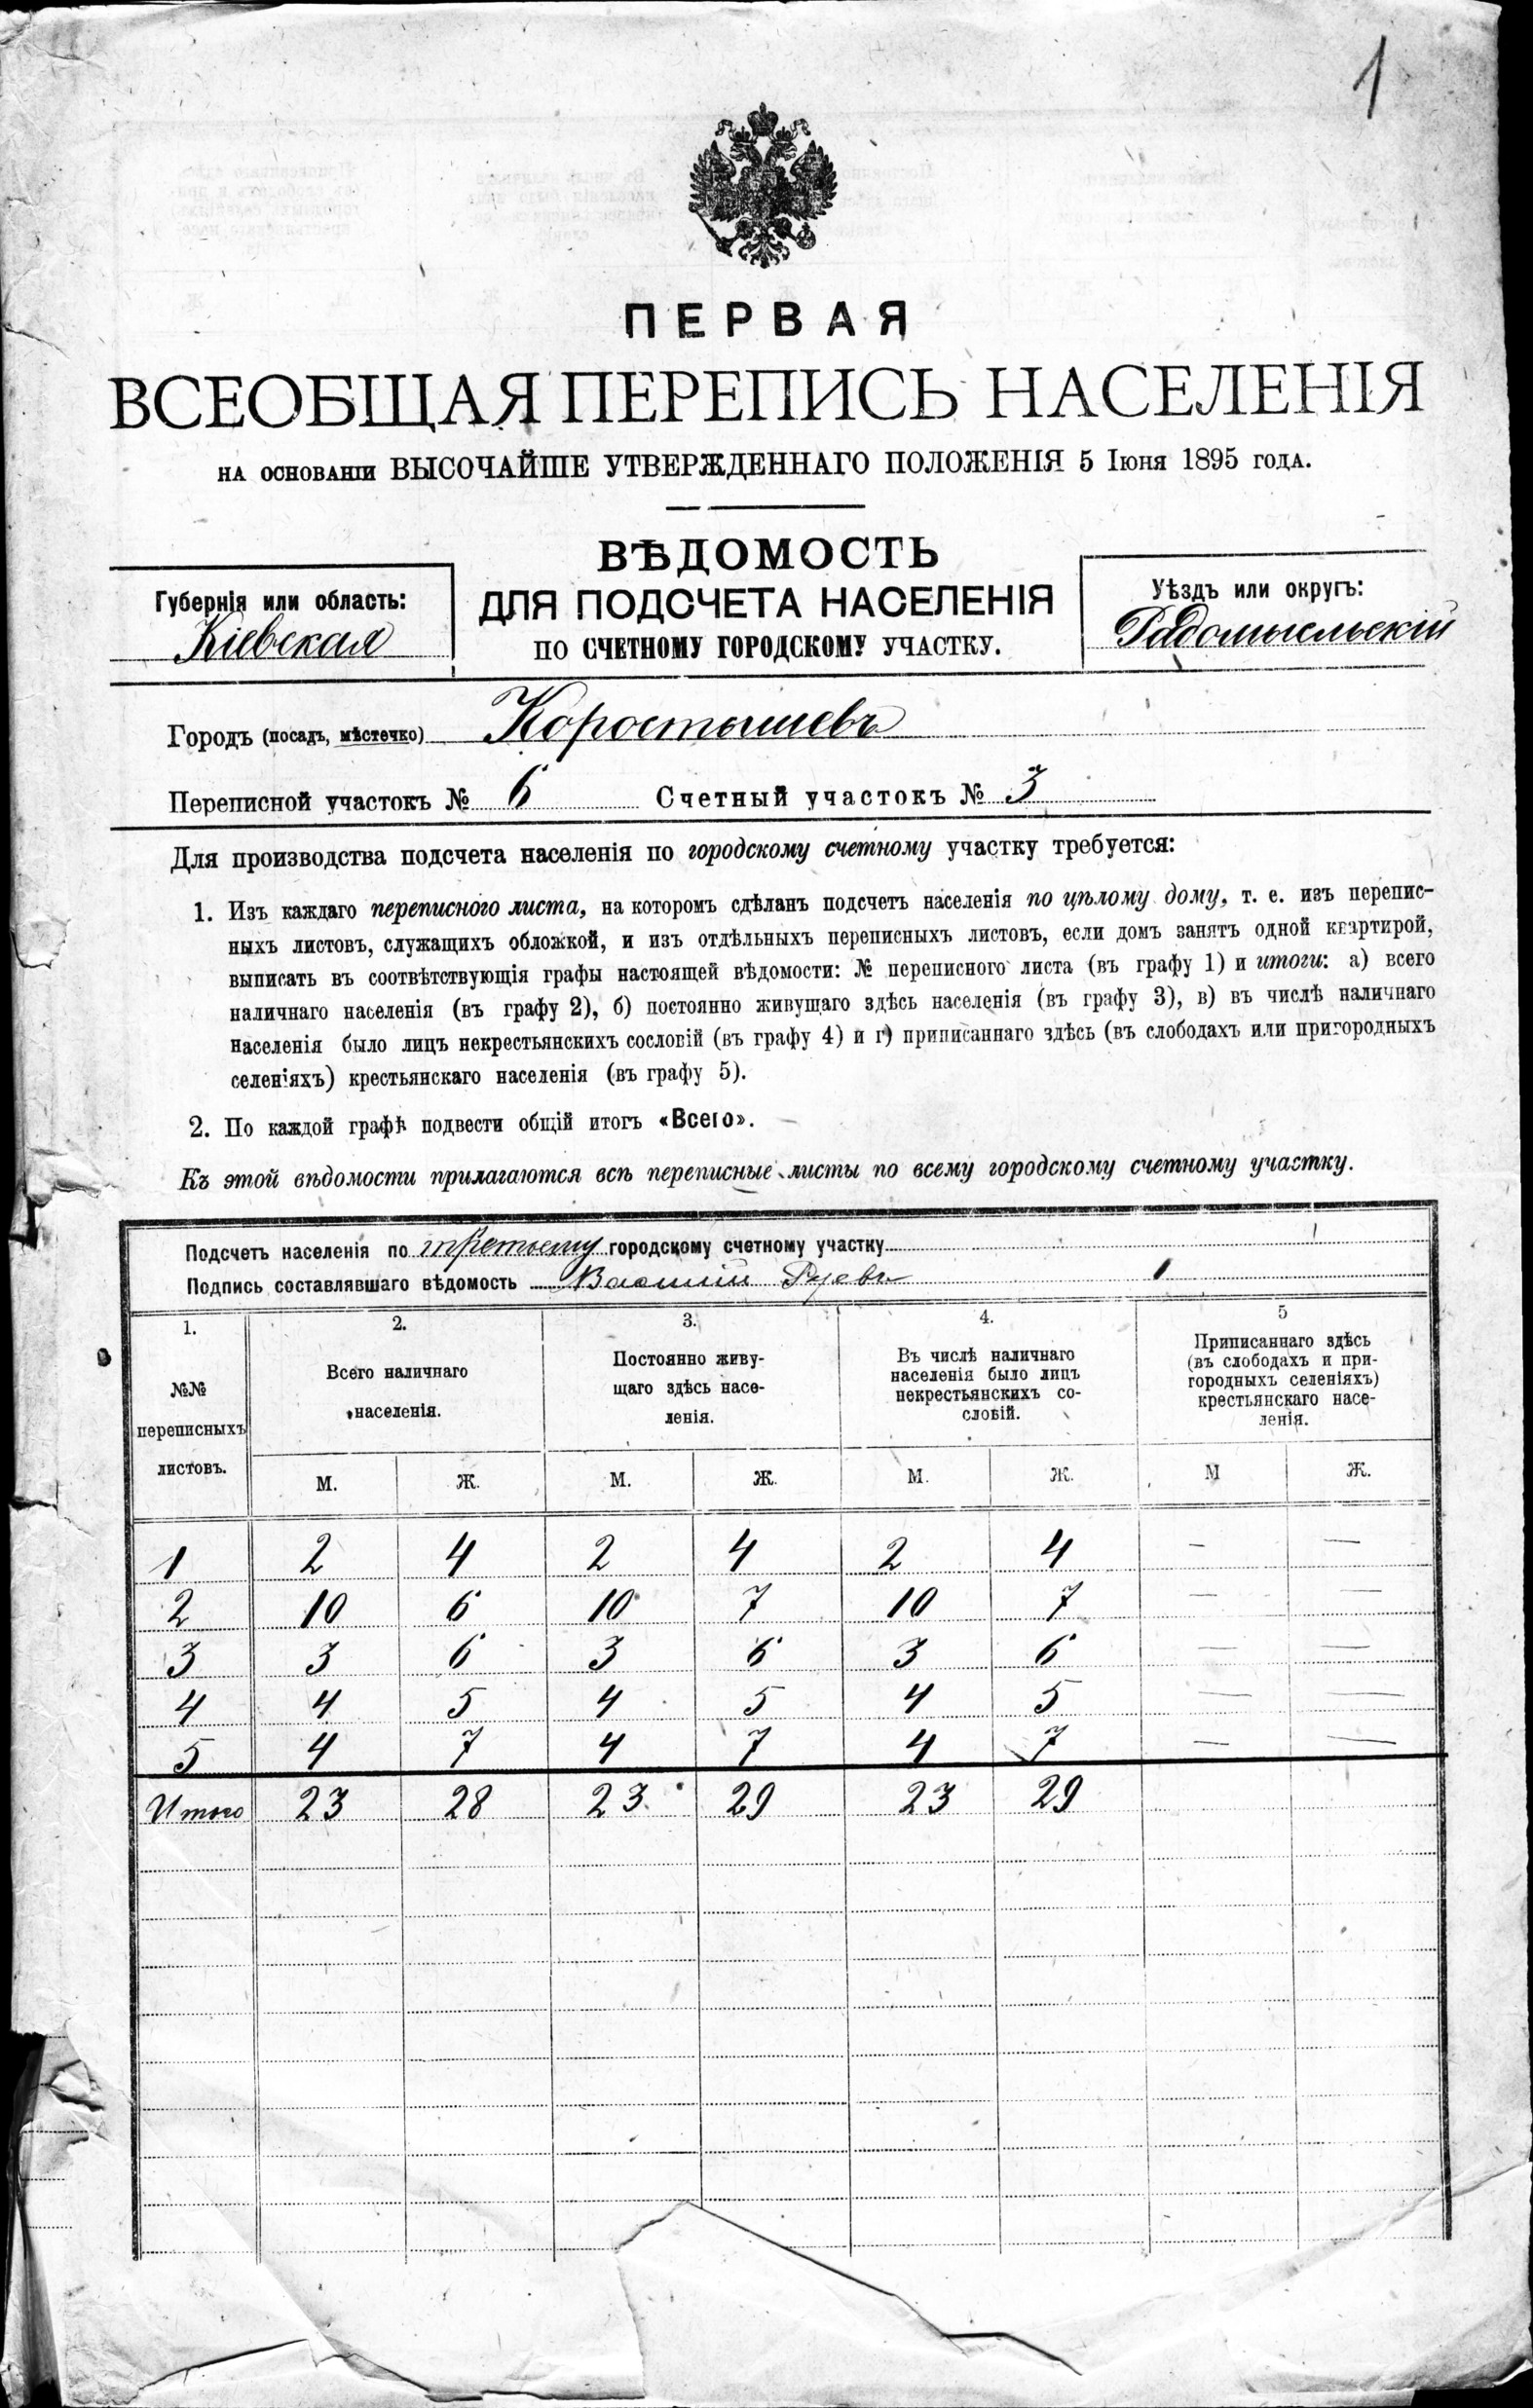 1
ПЕРВАЯ
ВСЕОБЩАЯ ПЕРЕПИСЬ НАСЕЛЕНІЯ
НА ОСНОВАНІИ ВЫСОЧАЙШЕ УТВЕРЖДЕННАГО ПОЛОЖЕНІЯ 5 Іюня 1895 ГОДА.
ВѢДОМОСТЬ
ДЛЯ ПОДСЧЕТА НАСЕЛЕНІЯ
ПО СЧЕТНОМУ ГОРОДСКОМУ УЧАСТКУ.
Губернія или область:
Кіевская
Уѣздъ или округъ:
Радомысльскій
Городъ (посадъ, мѣстечко) Коростышевъ
Переписной участокъ № 6 Счетный участокъ № 3
Для производства подсчета населенія по городскому счетному участку требуется:
1. Изъ каждаго переписного листа, на которомъ сдѣланъ подсчетъ населенія по цѣлому дому, т. е. изъ перепис-
ныхъ листовъ, служащихъ обложкой, и изъ отдѣльныхъ переписныхъ листовъ, если домъ занятъ одной квартирой,
выписать въ соотвѣтствующія графы настоящей вѣдомости: № переписного листа (въ графу 1) и итоги: а) всего
наличнаго населенія (въ графу 2), б) постоянно живущаго здѣсь населенія (въ графу 3), в) въ числѣ наличнаго
населенія было лицъ некрестьянскихъ сословій (въ графу 4) и г) приписаннаго здѣсь (въ слободахъ или пригородныхъ
селеніяхъ) крестьянскаго населенія (въ графу 5).
2. По каждой графѣ подвести общій итогъ «Всего».
Къ этой вѣдомости прилагаются всѣ переписные листы по всему городскому счетному участку.
Подсчетъ населенія по третьему городскому счетному участку
Подпись составлявшаго вѣдомость Василій
1.
№№
переписныхъ
листовъ.
2.
Всего наличнаго
населенія.
3.
Постоянно живу-
щаго здѣсь насе-
ленія.
4.
Въ числѣ наличнаго
населенія было лицъ
некрестьянскихъ со-
словій.
5
Приписаннаго здѣсь
(въ слободахъ и при-
городныхъ селеніяхъ)
крестьянскаго насе-
ленія.
М. Ж. М. Ж. М. Ж. М Ж.
1 2 4 2 4 2 4 — —
2 10 6 10 7 10 7 — —
3 3 6 3 6 3 6 — —
4 4 5 4 5 4 5 — —
5 4 7 4 7 4 7 — —
Итого 23 28 23 29 23 29